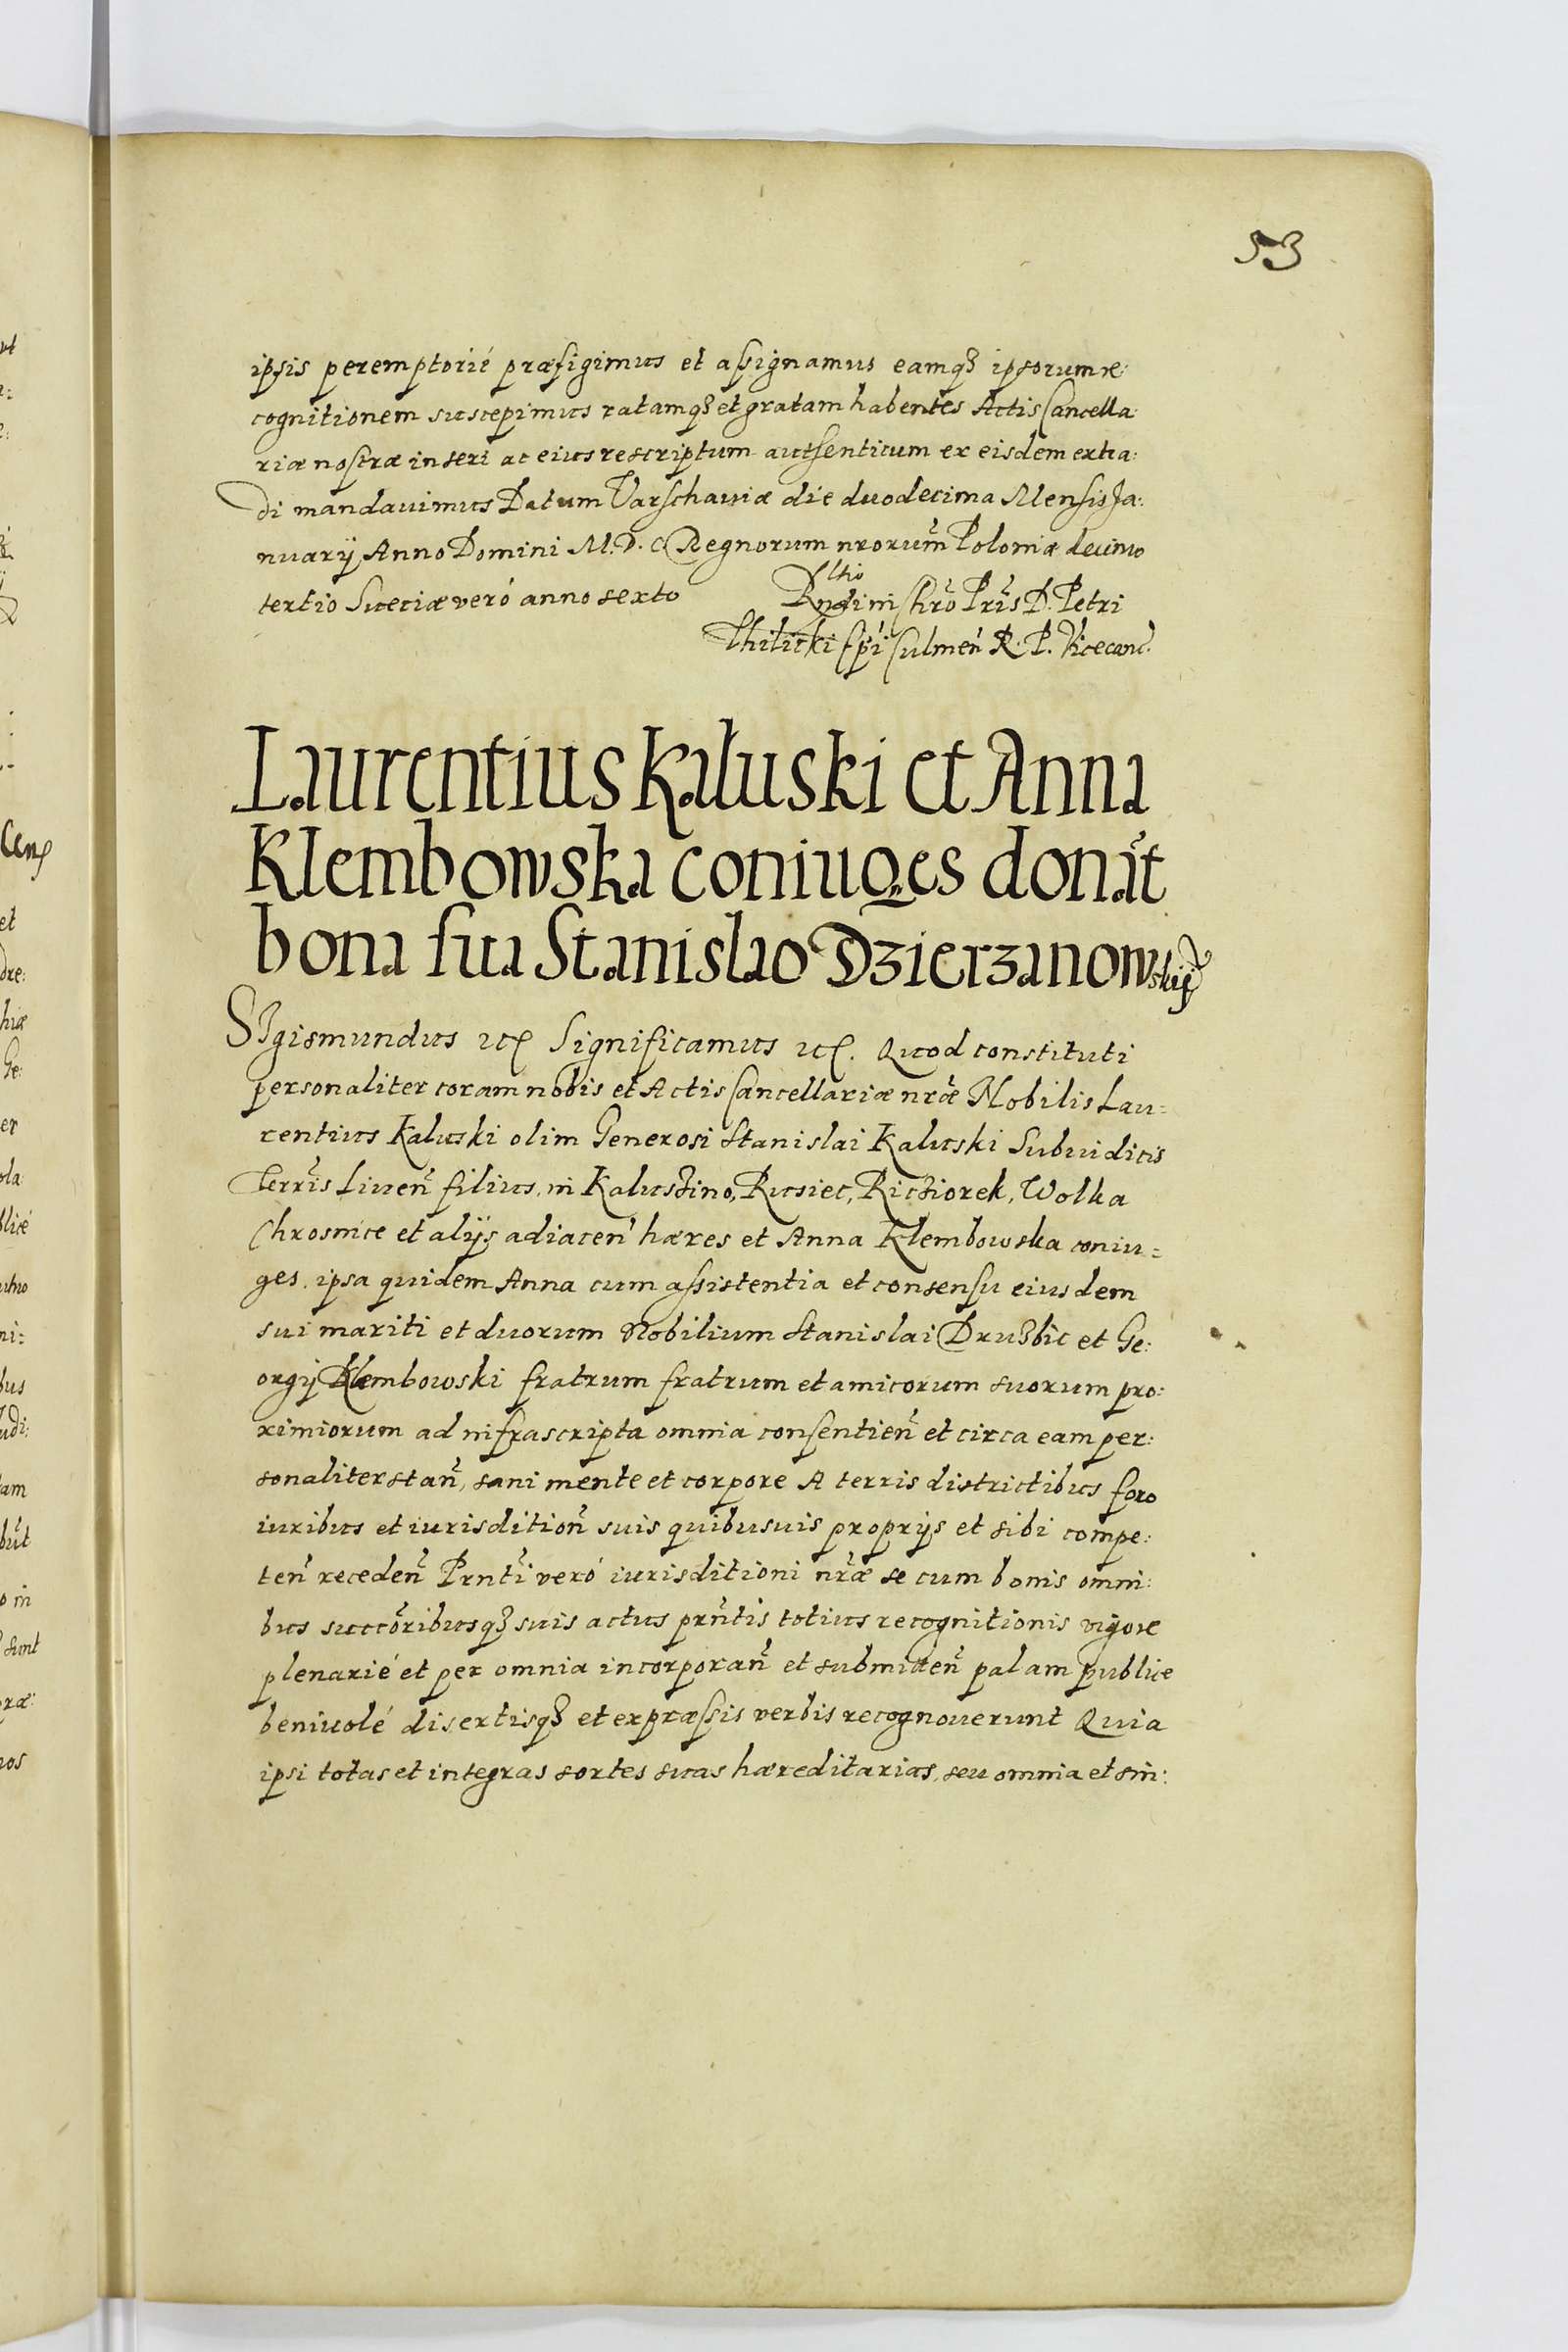 53
ipsis peremptorié præfigimus et assignamus eamqꝫ ipsorum re:
cognitionem suscepimus ratamqꝫ et gratam habentes Actis Cancella:
riæ nostræ inseri ac eius rescriptum authenticum ex eisdem extra:
di mandauimus Datum Varschauiæ die duodecima Mensis Ja:
nuarij Anno Domini M.D.C Regnorum nrorum̃ Poloniæ decimo
tertio Sueciæ veró anno sexto
Rltio
Rndi in Chro Pris D. Petri
Thilicki Epi Culmen̄ R. P. Vicecanc.
Laurentius Kaluski et Anna
Klembowska coniuges donāt
bona sua Stanislao Dzierzanowskij
SIgismundus etc Significamus etc. Quod constituti
personaliter coram nobis et Actis Cancellariæ nræ Nobilis Lau=
rentius Kaluski olim Generosi Stanislai Kaluski Subiudicis
Terris Liuen̄ filius, in Kaluszino, Rusiec, Ricziorek, Wolka
Chrosnice et alijs adiacen̄ hæres et Anna Klembowska coniu=
ges. ipsa quidem Anna cum assistentia et consensu eiusdem
sui mariti et duorum Nobilium Stanislai Druzbic et Ge:
orgij Klembowski fratrum fratrum et amicorum suorum pro:
ximiorum ad infrascripta omnia consentien̄ et circa eam per:
sonaliter stan̄, sani mente et corpore A terris districtibus foro
iuribus et iurisdition̄ suis quibusuis proprijs et sibi compe:
ten̄ receden̄ Prnti veró iurisditioni nræ se cum bonis omni:
bus succoribusqꝫ suis actus prntis totius recognitionis vigore
plenarié et per omnia incorporan̄ et submitten̄ palam publice
beniuolé disertisqꝫ et expræssis verbis recognouerunt Quia
ipsi totas et integras sortes suas hæreditarias, seu omnia et sin: